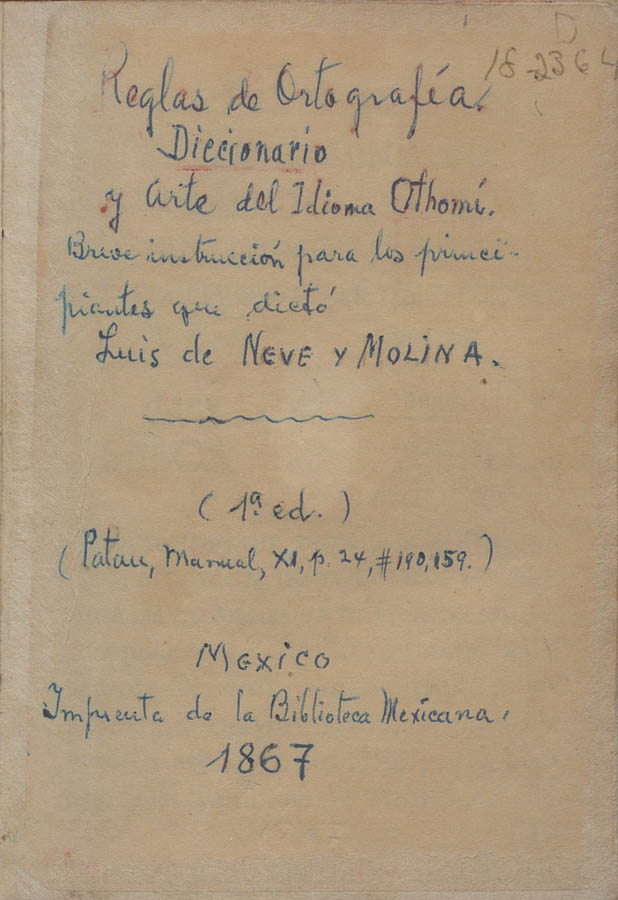 D
18-2364
Reglas de Ortografía.
Diccionario
y Arte del Idioma Othomí.
Breve instrucción para los princi-
piantes que dictó
Luis de NEVE Y MOLINA.
(1ª ed.)
(Patau, Manual, XI, p. 24, #190,159.)
MEXICO
Imprenta de la Biblioteca Mexicana.
1867